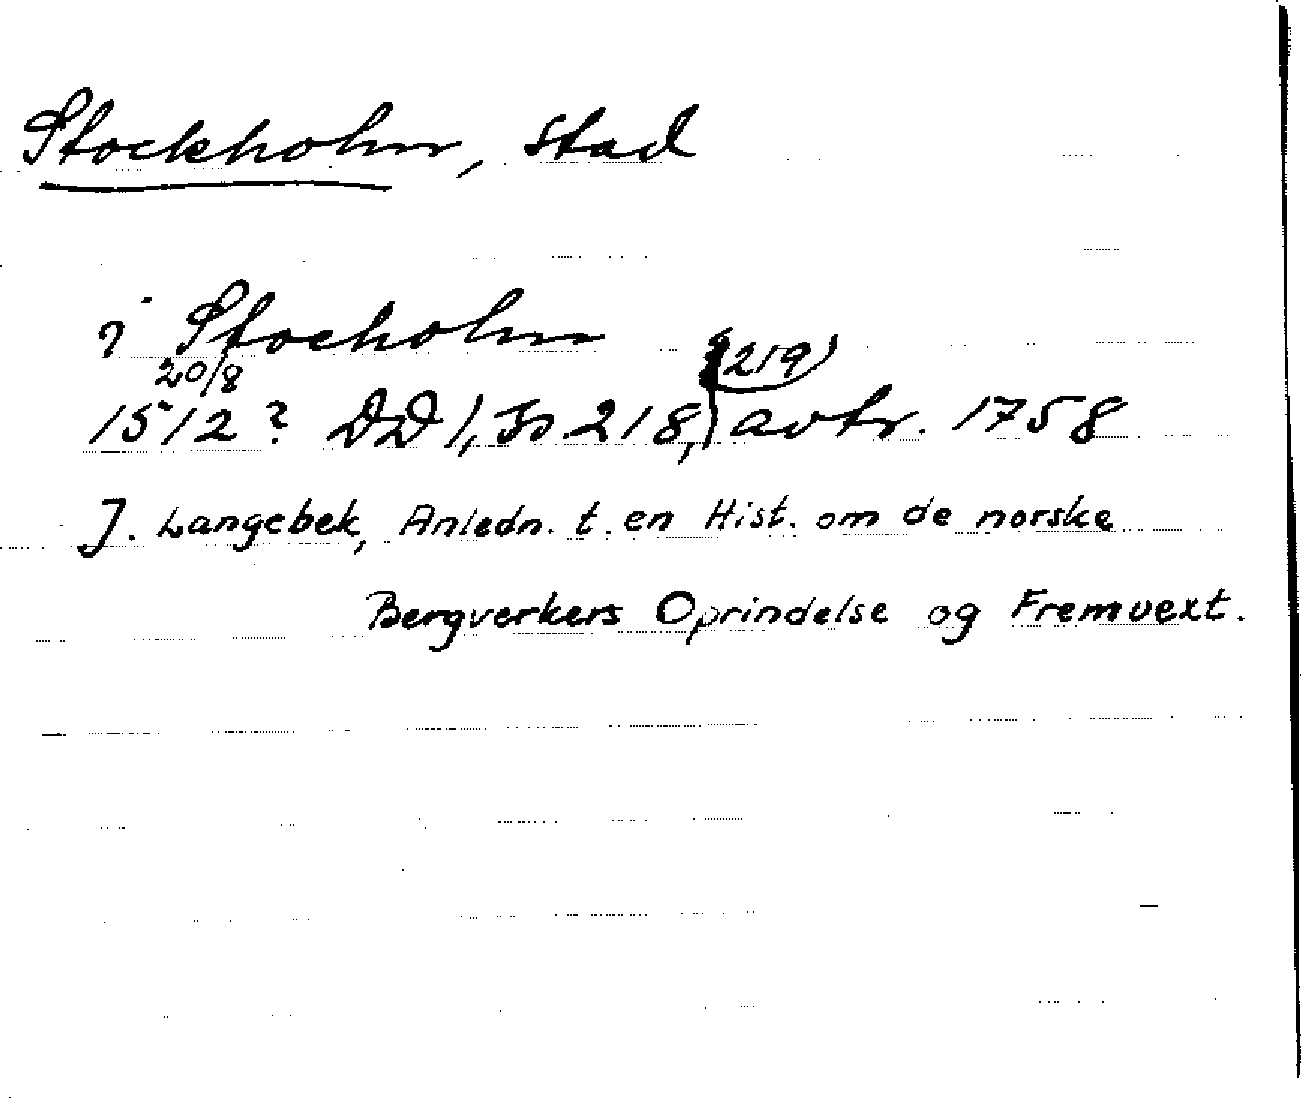 Stockholm, stad
i Stocholm
20/8 (219)
1512? DD 1, s 218, avtr. 1758
J. Langebek, Anledn. t. en Hist. om de norske
Bergverkers Oprindelse og Fremvext.